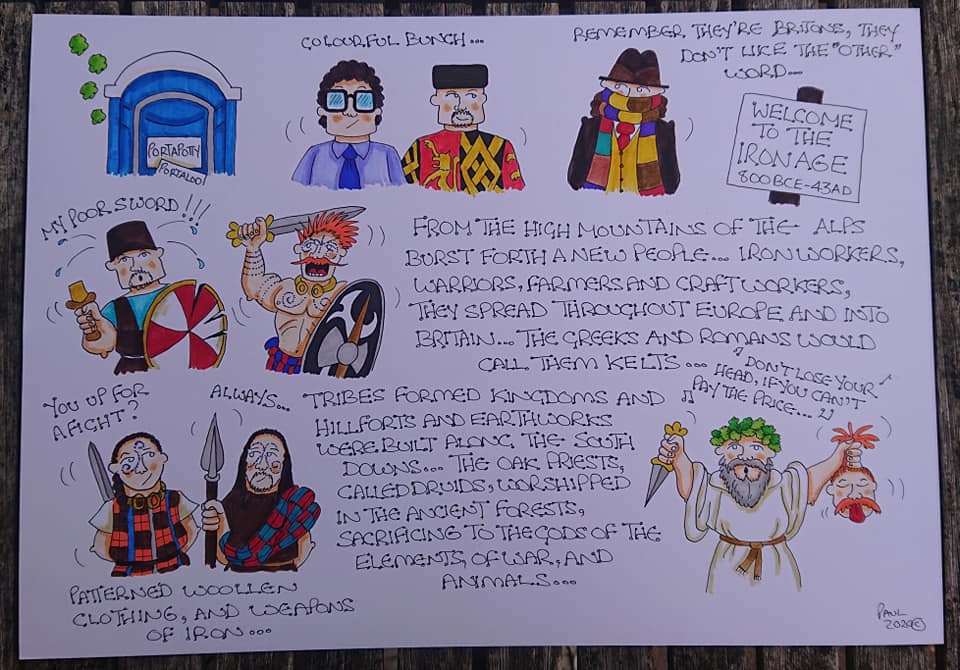 COLOURFUL BUNCH...
REMEMBER THEY'RE BRITONS, THEY
DON'T LIKE THE "OTHER"
WORD...
PORTAPOTTY
PORTALOO!
WELCOME
TO THE
IRON AGE
800BCE-43AD
MY POOR SWORD!!!
FROM THE HIGH MOUNTAINS OF THE ALPS
BURST FORTH A NEW PEOPLE... IRON WORKERS,
WARRIORS, FARMERS AND CRAFT WORKERS,
THEY SPREAD THROUGHOUT EUROPE AND INTO
BRITAIN... THE GREEKS AND ROMANS WOULD
CALL THEM KELTS...
YOU UP FOR
A FIGHT?
ALWAYS...
TRIBES FORMED KINGDOMS AND
HILLFORTS AND EARTHWORKS
WERE BUILT ALONG THE SOUTH
DOWNS... THE OAK PRIESTS,
CALLED DRUIDS, WORSHIPPED
IN THE ANCIENT FORESTS,
SACRIFICING TO THE GODS OF THE
ELEMENTS, OF WAR, AND
ANIMALS...
♫ DON'T LOSE YOUR ♪
HEAD, IF YOU CAN'T
♫ PAY THE PRICE... ♫
PATTERNED WOOLLEN
CLOTHING, AND WEAPONS
OF IRON...
PAUL
2020©